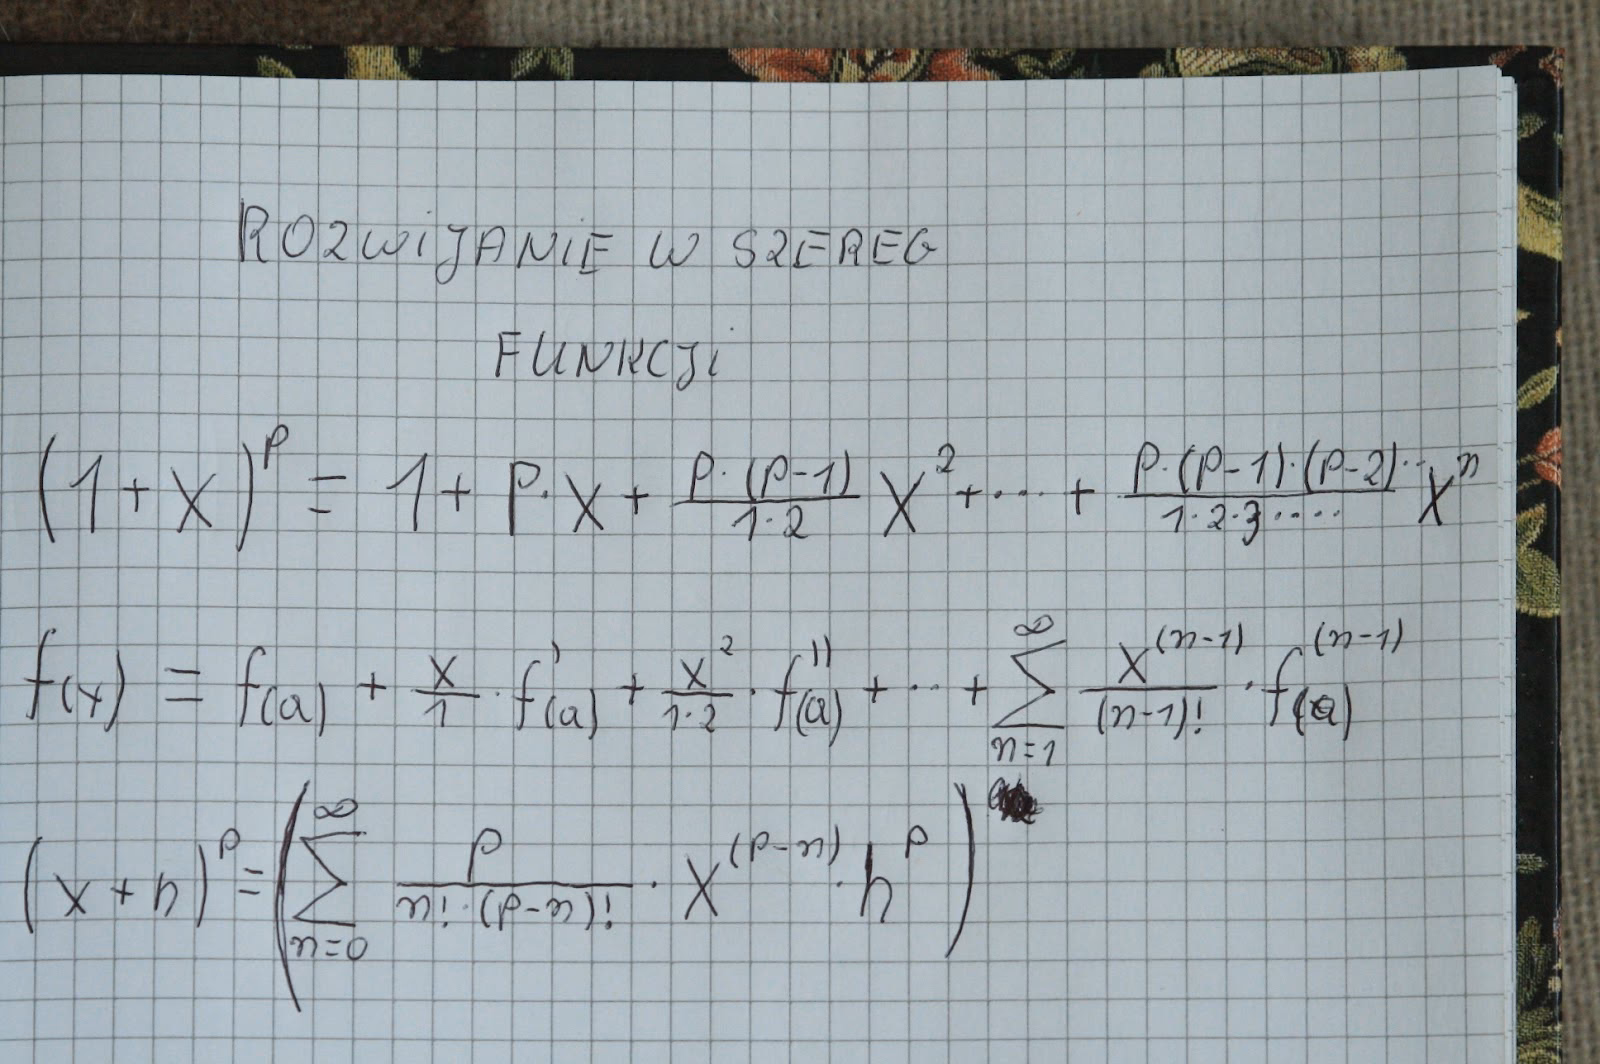 ROZWiJANiE W SZEREG
FUNKCJi
(1+x)^p = 1+p·x+\frac{p·(p-1)}{1·2}x^2+···+\frac{p·(p-1)·(p-2)··}{1·2·3····}x^n
f(x) = f(a) + \frac{x}{1}·f'(a) + \frac{x^2}{1·2}·f''(a) + ·· + \sum_{n=1}^{∞} \frac{x^{(n-1)}}{(n-1)!}·f^{(n-1)}(a)
(x+h)^p = (\sum_{n=0}^{∞} \frac{p}{n!·(p-n)!}·x^{(p-n)}·h^p)